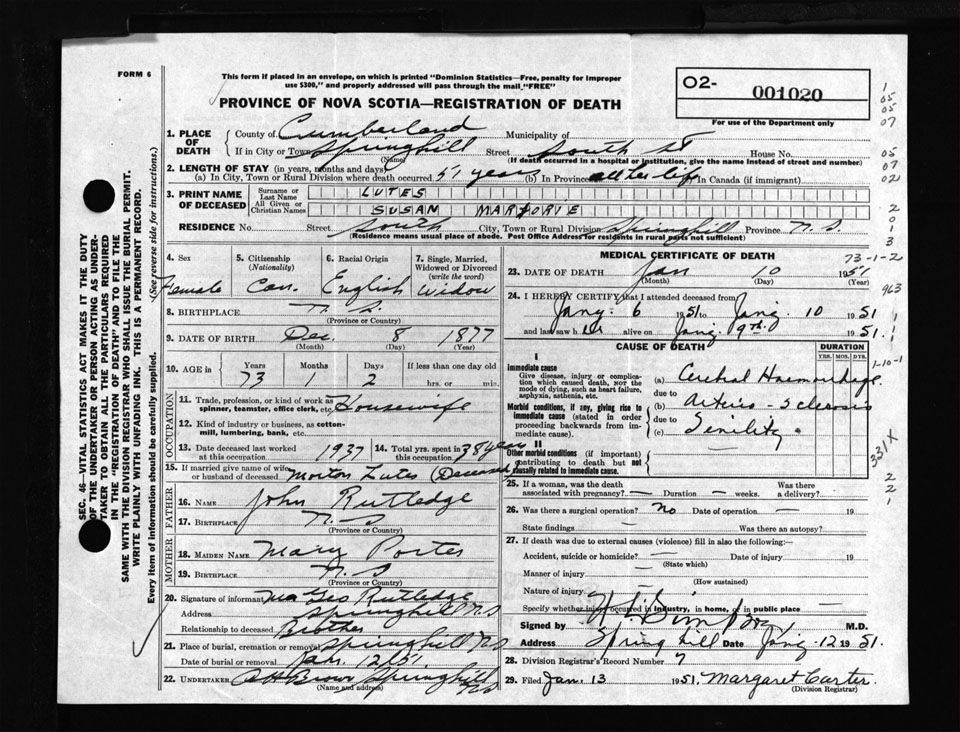 FORM 6
This form if placed in an envelope, on which is printed "Dominion Statistics—Free, penalty for improper
use $300," and properly addressed will pass through the mail "FREE"
PROVINCE OF NOVA SCOTIA—REGISTRATION OF DEATH
O2- 001020
For use of the Department only
1. PLACE OF DEATH { County of Cumberland Municipality of
If in City or Town Springhill Street South St House No.
(Name) (If death occurred in a hospital or institution, give the name instead of street and number)
2. LENGTH OF STAY (in years, months and days)
(a) In City, Town or Rural Division where death occurred 51 years (b) In Province all her life In Canada (if immigrant)
3. PRINT NAME OF DECEASED { Surname or Last Name LUTES
All Given or Christian Names SUSAN MARJORIE
RESIDENCE No. Street South City, Town or Rural Division Springhill Province N.S.
(Residence means usual place of abode. Post Office Address for residents in rural parts not sufficient)
4. Sex Female
5. Citizenship (Nationality) Can.
6. Racial Origin English
7. Single, Married, Widowed or Divorced (write the word) Widow
8. BIRTHPLACE N.S.
(Province or Country)
9. DATE OF BIRTH Dec. 8 1877
(Month) (Day) (Year)
10. AGE in { Years 73 Months 1 Days 2 If less than one day old hrs. or min.
OCCUPATION
11. Trade, profession, or kind of work as spinner, teamster, office clerk, etc. Housewife
12. Kind of industry or business, as cotton-mill, lumbering, bank, etc.
13. Date deceased last worked at this occupation 1937
14. Total yrs. spent in this occupation 38 years
15. If married give name of wife or husband of deceased Morton Lutes (Deceased)
FATHER
16. Name John Rutledge
17. Birthplace N.S.
(Province or Country)
MOTHER
18. MAIDEN NAME Mary Porter
19. BIRTHPLACE N.S
(Province or Country)
20. Signature of informant Geo Rutledge
Address Springhill N.S
Relationship to deceased Brother
21. Place of burial, cremation or removal Springhill NS
Date of burial or removal Jan. 12/51
22. UNDERTAKER Brown Springhill NS
(Name and address)
MEDICAL CERTIFICATE OF DEATH
73-1-2
23. DATE OF DEATH Jan 10 1951
(Month) (Day) (Year)
24. I HEREBY CERTIFY that I attended deceased from
Jany. 6 1951 to Jany. 10 1951
and last saw h er alive on Jany. 9th. 1951.
CAUSE OF DEATH DURATION
YRS. MOS. DYS.
I
Immediate cause
Give disease, injury or complication which caused death, NOT the mode of dying, such as heart failure, asphyxia, asthenia, etc.
(a) Cerebral Haemorrhage
due to
Morbid conditions, if any, giving rise to immediate cause (stated in order proceeding backwards from immediate cause)
(b) Arterio-sclerosis
due to
(c) Senility.
II
Other morbid conditions (if important) contributing to death but not causally related to immediate cause.
25. If a woman, was the death associated with pregnancy? — Duration — weeks. Was there a delivery?
26. Was there a surgical operation? No Date of operation — 19
State findings — Was there an autopsy?
27. If death was due to external causes (violence) fill in also the following:—
Accident, suicide or homicide? — Date of injury 19
(State which)
Manner of injury —
(How sustained)
Nature of injury —
Specify whether injury occurred in industry, in home, or in public place —
Signed by M.D.
Address Springhill Date Jany. 12 1951.
28. Division Registrar's Record Number 7
29. Filed Jan. 13 1951 Margaret Carter.
(Division Registrar)
SEC. 46—VITAL STATISTICS ACT MAKES IT THE DUTY
OF THE UNDERTAKER OR PERSON ACTING AS UNDER-
TAKER TO OBTAIN ALL THE PARTICULARS REQUIRED
IN THE "REGISTRATION OF DEATH" AND TO FILE THE
SAME WITH THE DIVISION REGISTRAR WHO SHALL ISSUE THE BURIAL PERMIT.
WRITE PLAINLY WITH UNFADING INK. THIS IS A PERMANENT RECORD.
Every item of information should be carefully supplied. (See reverse side for instructions.)
05
05
07
05
07
02
2
0
1
3
963
1-10-1
331X
2
2
1